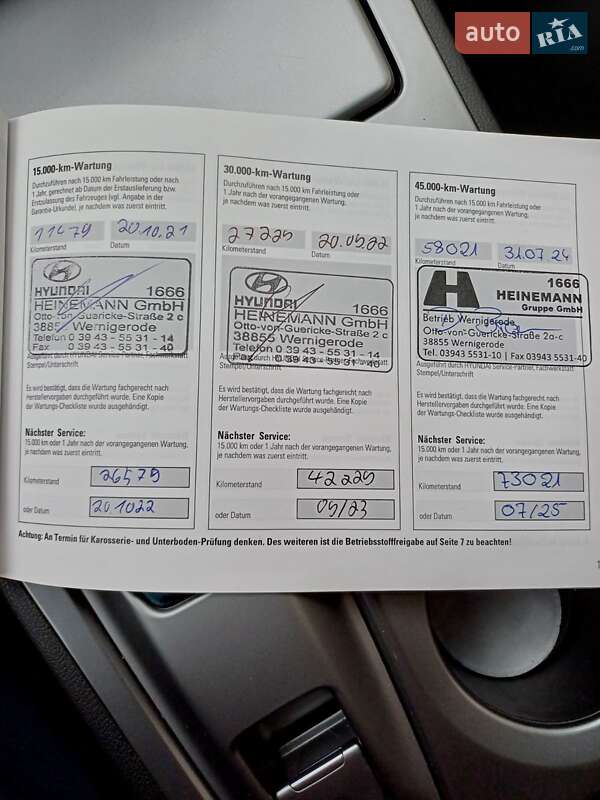 auto RIA.com
15.000-km-Wartung
Durchzuführen nach 15.000 km Fahrleistung oder nach
1 Jahr, gerechnet ab Datum der Erstauslieferung bzw.
Erstzulassung des Fahrzeuges (vgl. Angabe in der
Garantie-Urkunde), je nachdem was zuerst eintritt.
11479 20.10.21
Kilometerstand Datum
HYUNDAI 1666
HEINEMANN GmbH
Otto-von-Guericke-Straße 2 c
38855 Wernigerode
Telefon 0 39 43 - 55 31 - 14
Fax 0 39 43 - 55 31 - 40
Ausgeführt durch HYUNDAI Service-Partner, Fachwerkstatt
Stempel/Unterschrift
Es wird bestätigt, dass die Wartung fachgerecht nach
Herstellervorgaben durchgeführt wurde. Eine Kopie
der Wartungs-Checkliste wurde ausgehändigt.
Nächster Service:
15.000 km oder 1 Jahr nach der vorangegangenen Wartung,
je nachdem was zuerst eintritt.
Kilometerstand 26579
oder Datum 201022
30.000-km-Wartung
Durchzuführen nach 15.000 km Fahrleistung oder
1 Jahr nach der vorangegangenen Wartung,
je nachdem was zuerst eintritt.
27225 20.0922
Kilometerstand Datum
HYUNDAI 1666
HEINEMANN GmbH
Otto-von-Guericke-Straße 2 c
38855 Wernigerode
Telefon 0 39 43 - 55 31 - 14
Fax 0 39 43 - 55 31 - 40
Ausgeführt durch HYUNDAI Service-Partner, Fachwerkstatt
Stempel/Unterschrift
Es wird bestätigt, dass die Wartung fachgerecht nach
Herstellervorgaben durchgeführt wurde. Eine Kopie
der Wartungs-Checkliste wurde ausgehändigt.
Nächster Service:
15.000 km oder 1 Jahr nach der vorangegangenen Wartung,
je nachdem was zuerst eintritt.
Kilometerstand 42225
oder Datum 09/23
45.000-km-Wartung
Durchzuführen nach 15.000 km Fahrleistung oder
1 Jahr nach der vorangegangenen Wartung,
je nachdem was zuerst eintritt.
58021 31.07.24
Kilometerstand Datum
1666
HEINEMANN
Gruppe GmbH
Betrieb Wernigerode
Otto-von-Guericke-Straße 2a-c
38855 Wernigerode
Tel. 03943 5531-10 | Fax 03943 5531-40
Ausgeführt durch HYUNDAI Service-Partner, Fachwerkstatt
Stempel/Unterschrift
Es wird bestätigt, dass die Wartung fachgerecht nach
Herstellervorgaben durchgeführt wurde. Eine Kopie
der Wartungs-Checkliste wurde ausgehändigt.
Nächster Service:
15.000 km oder 1 Jahr nach der vorangegangenen Wartung,
je nachdem was zuerst eintritt.
Kilometerstand 73021
oder Datum 07/25
Achtung: An Termin für Karosserie- und Unterboden-Prüfung denken. Des weiteren ist die Betriebsstofffreigabe auf Seite 7 zu beachten!